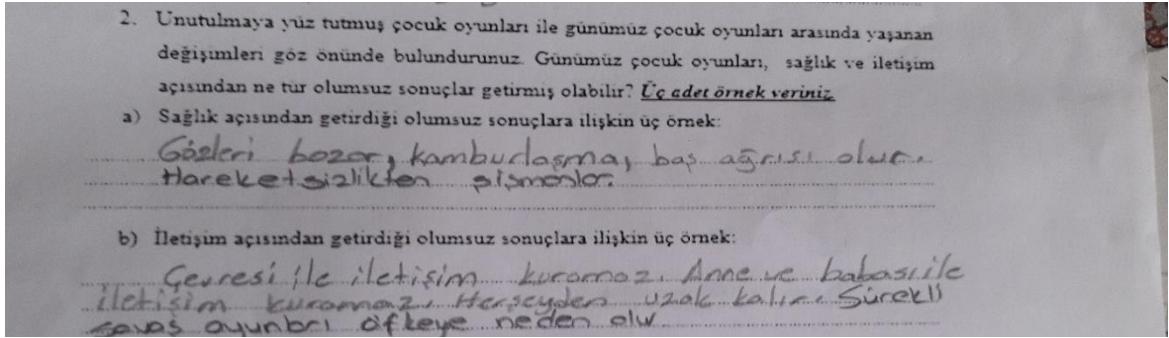 2. Unutulmaya yüz tutmuş çocuk oyunları ile günümüz çocuk oyunları arasında yaşanan
değişimleri göz önünde bulundurunuz. Günümüz çocuk oyunları, sağlık ve iletişim
açısından ne tür olumsuz sonuçlar getirmiş olabilir? Üç adet örnek veriniz
a) Sağlık açısından getirdiği olumsuz sonuçlara ilişkin üç örnek:
Gözleri bozar, kamburlaşma, baş ağrısı olur.
Hareketsizlikten şişmanlar.
b) İletişim açısından getirdiği olumsuz sonuçlara ilişkin üç örnek:
Çevresi ile iletişim kuramaz. Anne ve babası ile
iletişim kuramaz. Herşeyden uzak kalır. Sürekli
savaş oyunları öfkeye neden olur